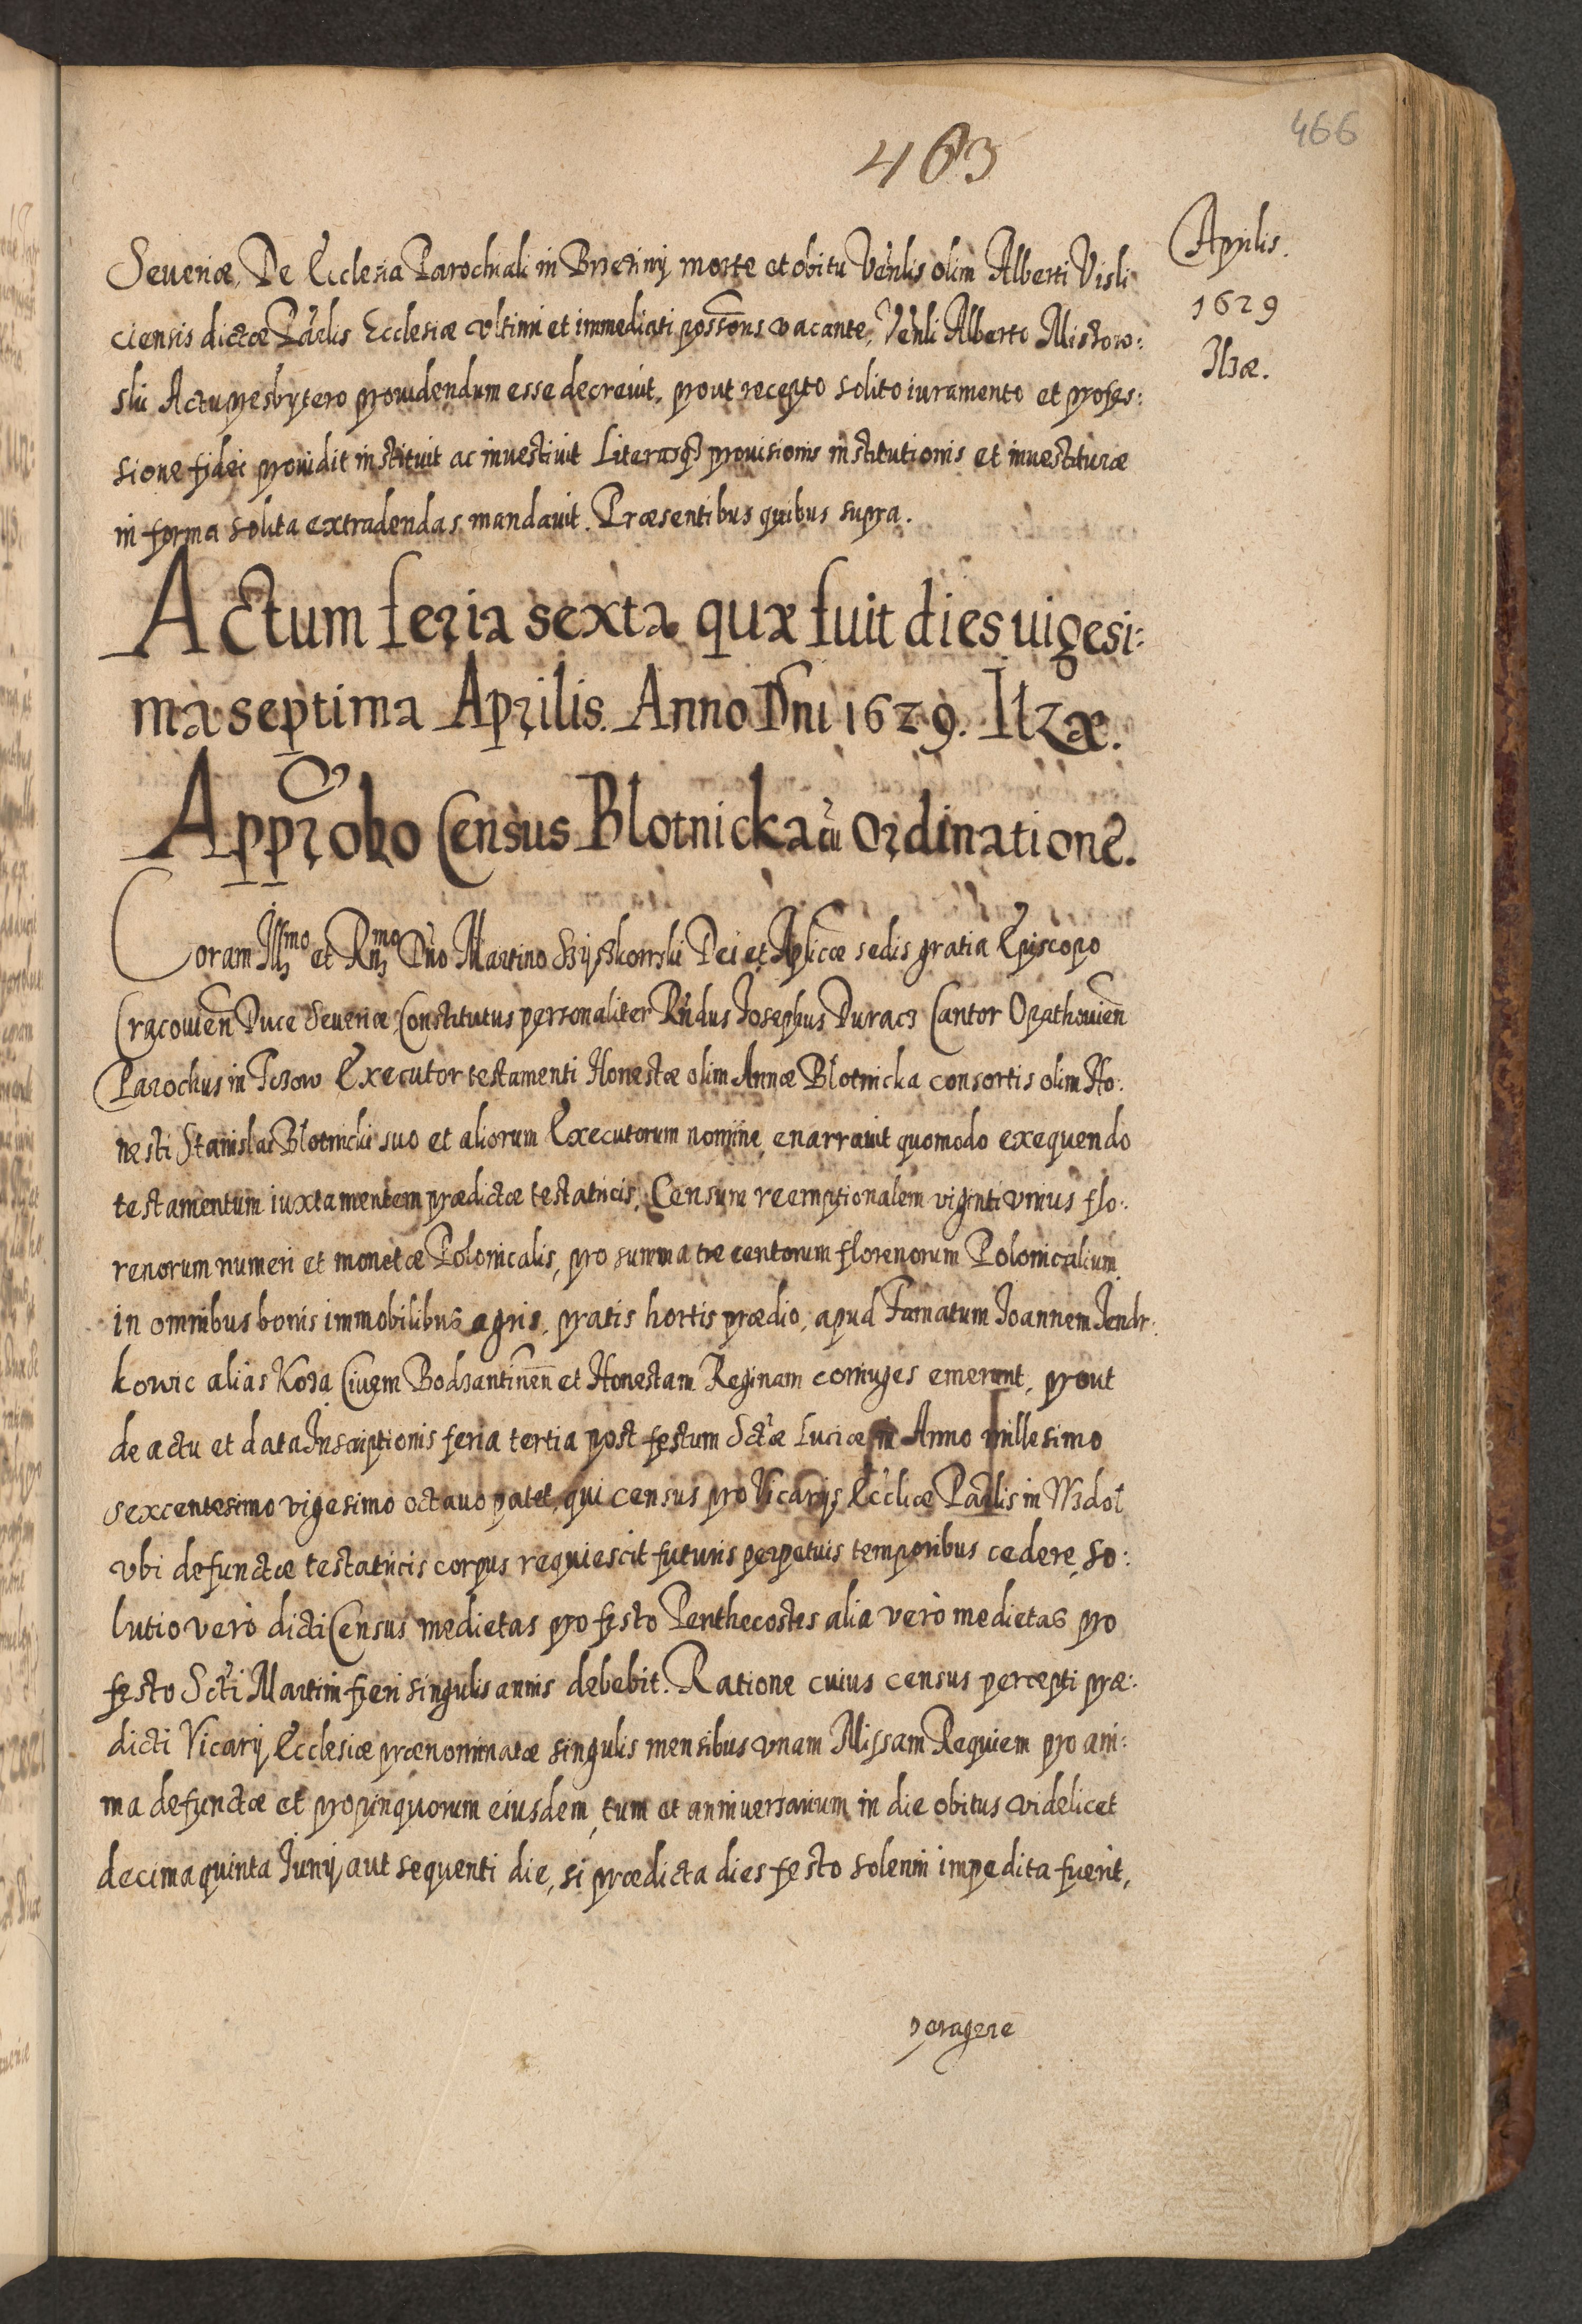 466
463
Aprilis.
1629
Ilzæ.
Seueriæ, De Ecclesia Parochiali in Brzeziny morte et obitu Venlis olim Alberti Visli
ciensis dictæ Parlis Ecclesiæ vltimi et immediati possons vacante, Venli Alberto Mistow:
ski Actu presbytero prouidendum esse decreuit, prout recepto solito iuramento et profes:
sione fidei prouidit instituit ac inuestiuit Literasq prouisionis institutionis et inuestituræ
in forma solita extradendas mandauit. Præsentibus quibus supra.
Actum feria sexta quæ fuit dies uigesi:
ma septima Aprilis. Anno Dni 1629. Ilzæ.
Approbo Census Blotnicka cu Ordinatione.
Coram Illmo et Rndmo Dno Martino Szyszkowski Dei et Aplicæ sedis gratia Episcopo
Cracouien Duce Seueriæ, Constitutus personaliter Rndus Josephus Duracz Cantor Opathouien
Parochus in Tczow Executor testamenti Honestæ olim Annæ Blotnicka consortis olim Ho:
nesti Stanislai Blotnicki suo et aliorum Executorum nomine, enarrauit quomodo exequendo
testamentum iuxta mentem prædictæ testatricis, Censum reemptionalem viginti vnius flo:
renorum numeri et monetæ Polonicalis, pro summa trecentorum florenorum Polonicalium
in omnibus bonis immobilibus agris, pratis hortis prædio, apud Famatum Joannem Jendr:
kowic aliàs Koza Ciuem Bodzantinen et Honestam Reginam coniuges emerunt, prout
de actu et data Inscriptionis feria tertia post festum Sctæ Luciæ in Anno millesimo
sexcentesimo vigesimo octauo patet, qui census pro Vicarijs Ecclicæ Parlis in Wzdoł
vbi defunctæ testatricis corpus requiescit futuris perpetuis temporibus cedere, so:
lutio verò dicti Census medietas pro festo Penthecostes alia verò medietas pro
festo Scti Martini fieri singulis annis debebit. Ratione cuius census percepti præ:
dicti Vicarij Ecclesiæ prænominatæ singulis mensibus vnam Missam Requiem pro ani:
ma defunctæ et propinquorum eiusdem, tum et anniuersarium in die obitus videlicet
decima quinta Junij aut sequenti die, si prædicta dies festo solenni impedita fuerit,
peragere